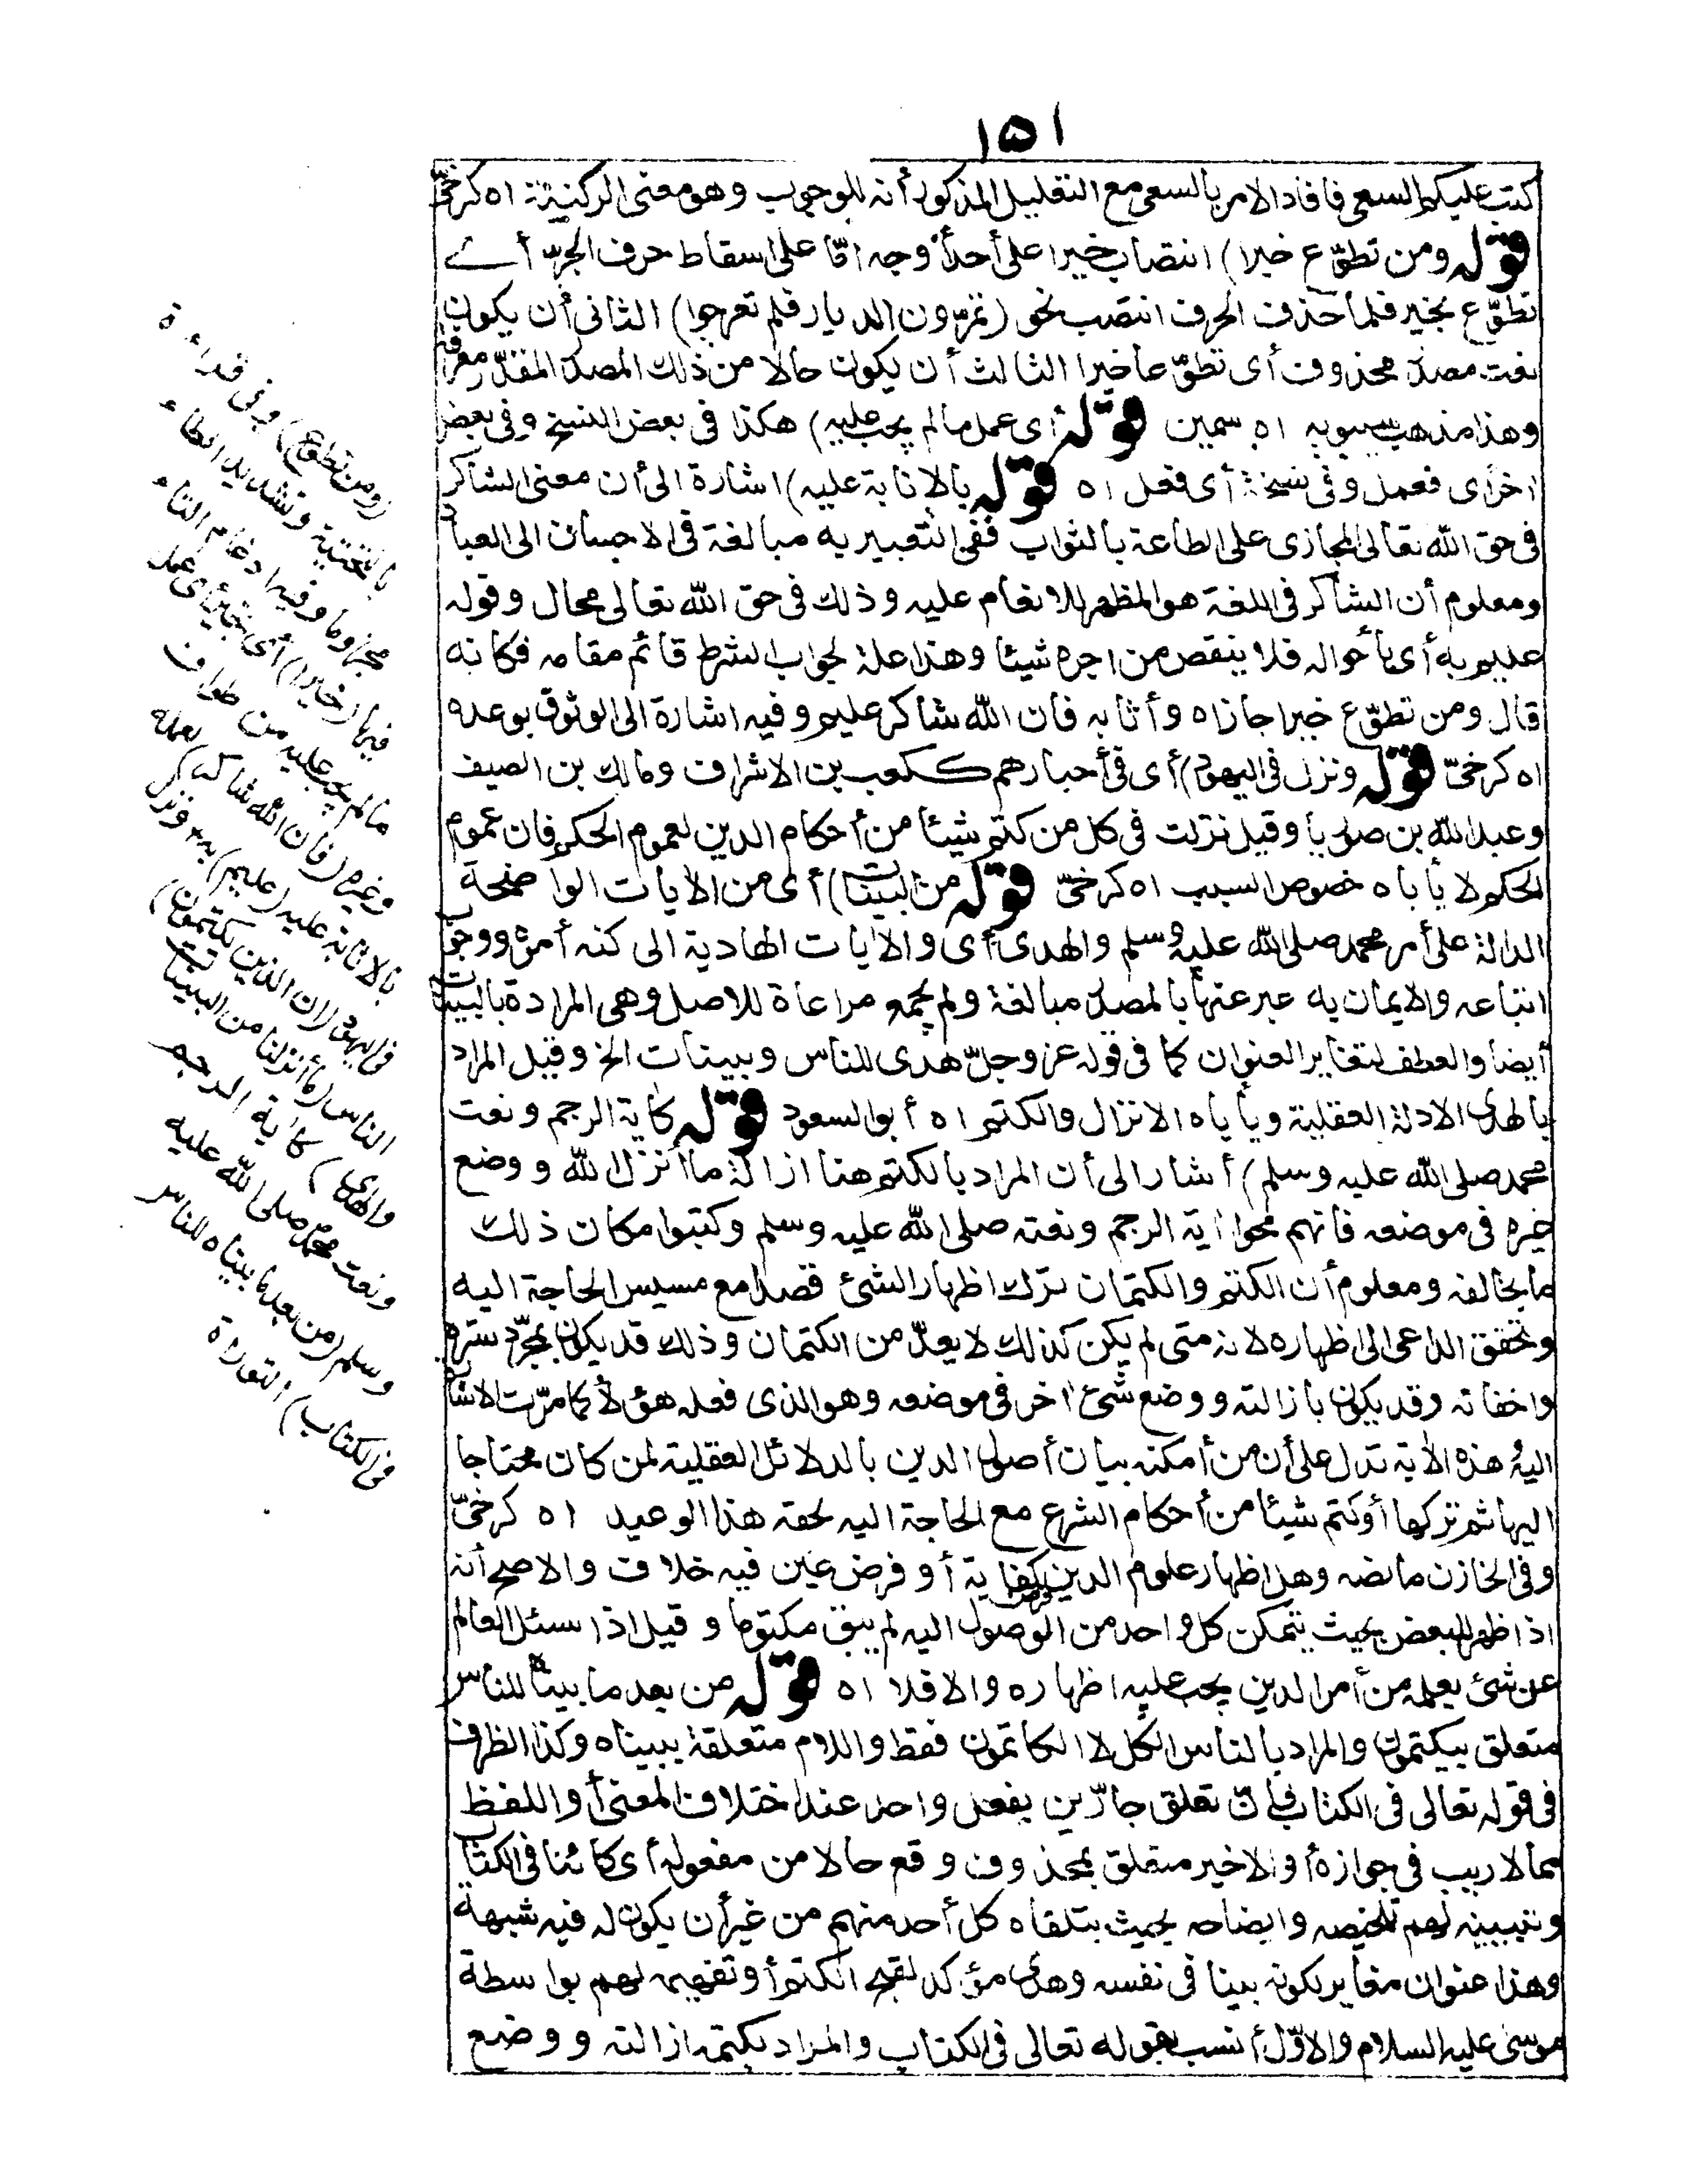 ١٥١
كتب عليكم السعى فافاد الامر بالسعى مع التعليل المذكور أنه للوجوب وهو معنى الركنية اه كرخىّ
قوله ومن تطوّع خيرا) انتصاب خيرا على أحد أوجه امّا على اسقاط حرف الجرّ أى
تطوّع بخير فلما حذف الحرف انتصب نحو (تمرّون الديار فلم تعوجوا) الثانى أن يكون
نعت مصدر محذوف أى تطوّعا خيرا الثالث أن يكون حالا من ذلك المصدر المقدّر معرفة
وهذا مذهب سيبويه اه سمين قوله أى عمل مالم يجب عليه) هكذا فى بعض النسخ وفى بعض
اخر أى فعمل وفى نسخة أى فعل اه قوله بالاثابة عليه) اشارة الى أن معنى الشاكر
فى حق الله تعالى المجازى على الطاعة بالثواب ففى التعبير به مبالغة فى الاحسان الى العباد
ومعلوم أن الشاكر فى اللغة هو المظهر للانعام عليه وذلك فى حق الله تعالى محال وقوله
عليم به أى بأحواله فلا ينقص من اجره شيئا وهذا علة لجواب الشرط قائم مقامه فكانه
قال ومن تطوّع خيرا جازاه وأثابه فان الله شاكر عليم وفيه اشارة الى الوثوق بوعده
اه كرخىّ قوله ونزل فى اليهود) أى فى أحبارهم ككعب بن الاشراف ومالك بن الصيف
وعبد الله بن صوريا وقيل نزلت فى كل من كتم شيئا من أحكام الدين لعموم الحكم فان عموم
الحكم لا يأباه خصوص السبب اه كرخىّ قوله من البينات) أى من الأيات الواضحة
الدالة على أمر محمد صلى الله عليه وسلم والهدى أى والأيات الهادية الى كنه أمره ووجوب
اتباعه والايمان به عبر عنها بالمصدر مبالغة ولم يجمع مراعاة للاصل وهى المرادة بالبينات
أيضا والعطف لتغاير العنوان كما فى قوله عز وجلّ هدى للناس وبينات الخ وقيل المراد
بالهدى الادلة العقلية ويأباه الانزال والكتم اه أبو السعود قوله كاية الرجم ونعت
محمد صلى الله عليه وسلم) أشار الى أن المراد بالكتم هنا ازالة ما أنزل الله ووضع
غيره فى موضعه فانهم محوا اية الرجم ونعته صلى الله عليه وسلم وكتبوا مكان ذلك
ما يخالفه ومعلوم أن الكتم والكتمان ترك اظهار الشئ قصدا مع مسيس الحاجة اليه
وتحقق الداعى الى اظهاره لانه متى لم يكن كذلك لا يعدّ من الكتمان وذلك قد يكون بمجرّد ستره
واخفائه وقد يكون بازالته ووضع شئ اخر فى موضعه وهو الذى فعله هؤلأ كما مرّت الاشارة
اليه هذه الأية تدل على أن من أمكنه بيان أصول الدين بالدلائل العقلية لمن كان محتاجا
اليها ثم تركها أو كتم شيئا من أحكام الشرع مع الحاجة اليه لحقه هذا الوعيد اه كرخىّ
وفى الخازن ما نصه وهل اظهار علوم الدين فرض كفاية أو فرض عين فيه خلاف والاصح أنه
اذا ظهر للبعض بحيث يتمكن كل واحد من الوصول اليه لم يبق مكتوما وقيل اذا سئل العالم
عن شئ يعلمه من أمر الدين يجب عليه اظهاره والا فلا اه قوله من بعد ما بيناه للناس
متعلق بيكتمون والمراد بالناس الكل لا الكاتمون فقط واللام متعلقة ببيناه وكذا الظرف
فى قوله تعالى فى الكتاب فانّ تعلق جارّين بفعل واحد عند اختلاف المعنى أو اللفظ
مما لا ريب فى جوازه أو الاخير متعلق بمحذوف وقع حالا من مفعوله أى كائنا فى الكتاب
وتبيينه لهم تلخيصه وايضاحه بحيث يتلقاه كل أحد منهم من غير أن يكون له فيه شبهة
وهذا عنوان مغاير لكونه بينا فى نفسه وهدى مؤكد لقبح الكتم أو تفهيمه لهم بواسطة
موسى عليه السلام والاوّل أنسب بقوله تعالى فى الكتاب والمراد بكتمه ازالته ووضع
(ومن تطوع) وفى قراءة
بالتحتية وتشديد الطاء
مجزوما وفيه ادغام التاء
فيها (خيرا) أى بخير أى عمل
مالم يجب عليه من طواف
وغيره (فان الله شاكر) لعمله
بالاثابة عليه (عليم) به ونزل
فى اليهود (ان الذين يكتمون)
الناس (ما أنزلنا من البينات
والهدى) كاية الرجم
ونعت محمد صلى الله عليه
وسلم (من بعد ما بيناه للناس
فى الكتاب) التوراة